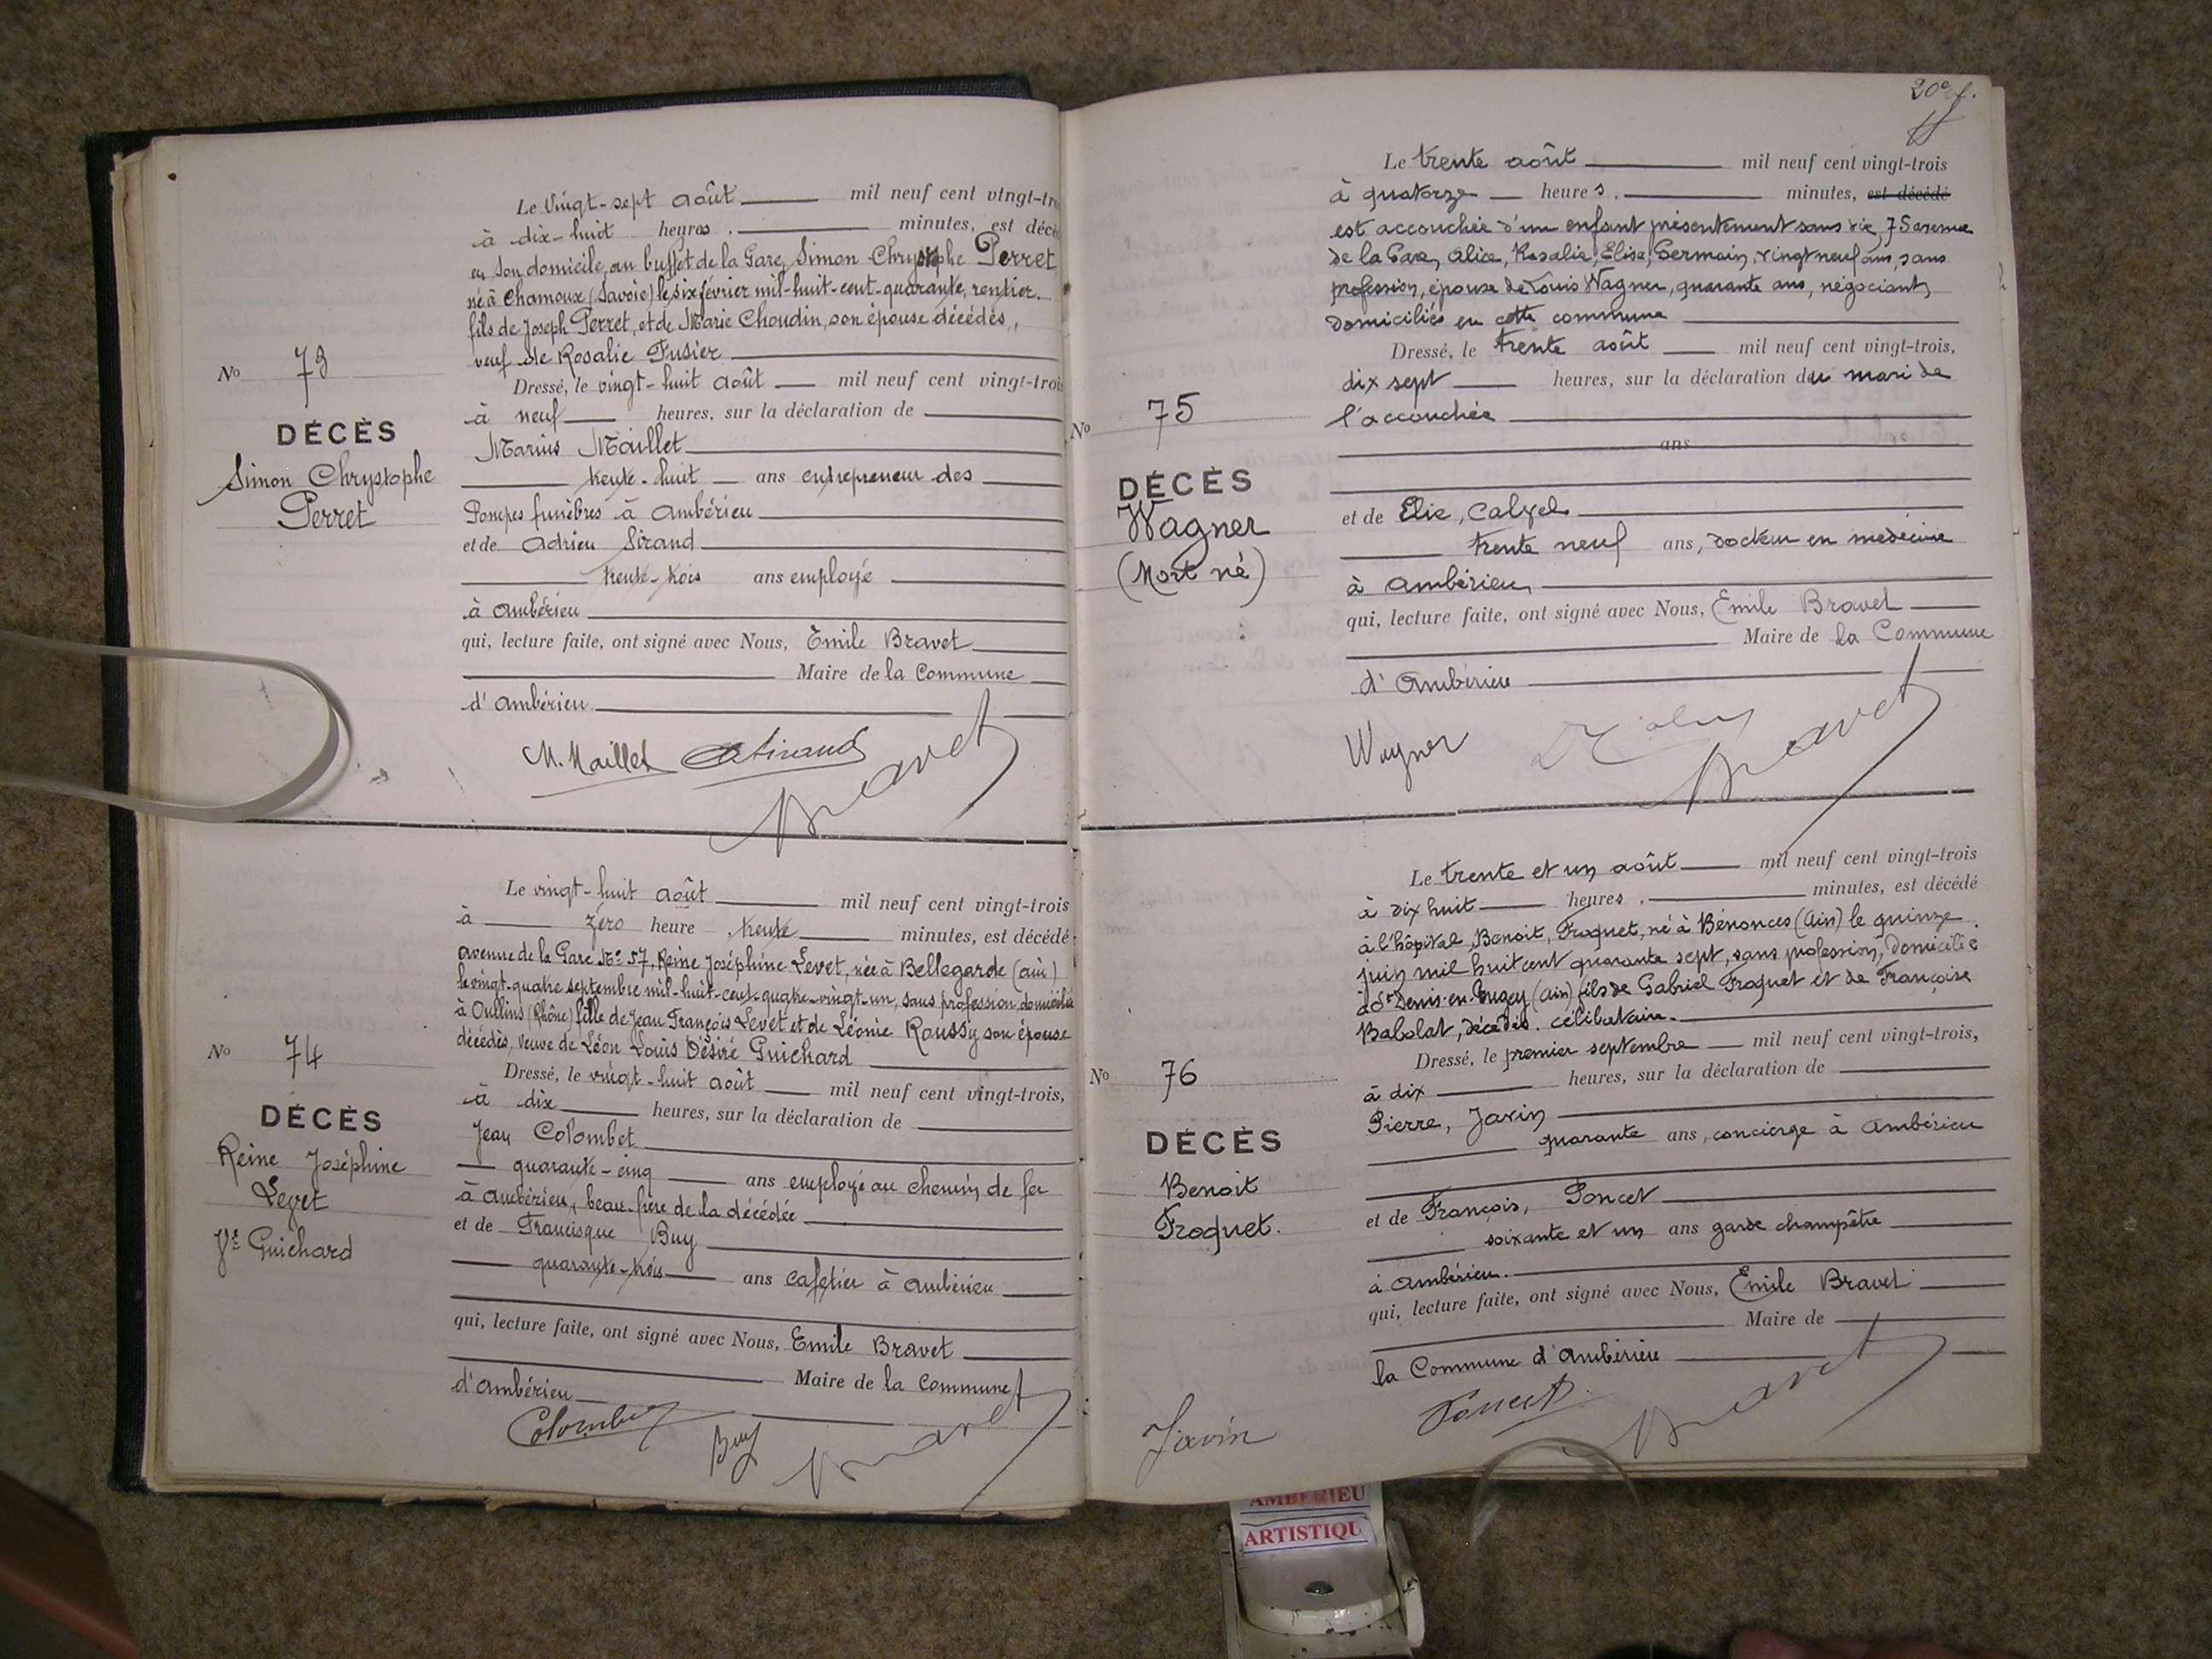 Le Vingt-sept août mil neuf cent vingt-tr
à dix-huit heures, minutes, est décé
en son domicile, au buffet de la Gare, Simon Chrystophe Perret
né à Chamoux (Savoie) le six février mil-huit-cent-quarante, rentier.
fils de Joseph Perret, et de Marie Choudin, son épouse décédés,
veuf de Rosalie Fusier
No 73
Dressé, le vingt-huit août mil neuf cent vingt-trois
à neuf heures, sur la déclaration de
DÉCÈS
Marius Maillet
Simon Chrystophe
Perret
trente-huit ans entrepreneur des
Pompes funèbres à Ambérieu
et de Adrien Sirand
trente-trois ans employé
à Ambérieu
qui, lecture faite, ont signé avec Nous, Emile Bravet
Maire de la Commune
d'Ambérieu
M. Maillet Sirand Bravet
Le vingt-huit août mil neuf cent vingt-trois
à zéro heure, trente minutes, est décédé
avenue de la Gare No 57, Reine Joséphine Levet, née à Bellegarde (ain)
le vingt-quatre septembre mil-huit-cent-quatre-vingt-un, sans profession, domiciliée
à Oullins (Rhône) fille de Jean François Levet et de Léonie Roussy son épouse
décédés, veuve de Léon Louis Désiré Guichard
No 74
Dressé, le vingt-huit août mil neuf cent vingt-trois,
à dix heures, sur la déclaration de
DÉCÈS
Jean Colombet
Reine Joséphine
Levet
Vve Guichard
quarante-cinq ans employé au chemin de fer
à Ambérieu, beau-frère de la décédée
et de Francisque Buy
quarante-trois ans cafetier à Ambérieu
qui, lecture faite, ont signé avec Nous, Emile Bravet
Maire de la Commune
d'Ambérieu
Colombet Buy Bravet
20e f.
Le trente août mil neuf cent vingt-trois
à quatorze heures. minutes, est décédé
est accouchée d'un enfant présentement sans vie, 75 avenue
de la Gare, Alice, Rosalie, Elise, Germain, vingt neuf ans, sans
profession, épouse de Louis Wagner, quarante ans, négociant,
domiciliés en cette commune
Dressé, le trente août mil neuf cent vingt-trois,
dix sept heures, sur la déclaration du mari de
No 75
l'accouchée
ans
DÉCÈS
Wagner
(Mort né)
et de Elie, Calzel
trente neuf ans, docteur en médecine
à Ambérieu,
qui, lecture faite, ont signé avec Nous, Emile Bravet
Maire de la Commune
d'Ambérieu
Wagner Bravet
Le trente et un août mil neuf cent vingt-trois
à dix huit heures, minutes, est décédé
à l'hôpital, Benoit, Froquet, né à Bénonces (Ain) le quinze
juin mil huit cent quarante sept, sans profession, domicilié
à St Denis-en-Bugey (Ain) fils de Gabriel Froquet et de Françoise
Babolat, décédés. célibataire.
Dressé, le premier septembre mil neuf cent vingt-trois,
No 76
à dix heures, sur la déclaration de
Pierre, Javin
DÉCÈS
quarante ans, concierge à Ambérieu
Benoit
Froquet.
et de François, Poncet
soixante et un ans garde champêtre
à Ambérieu.
qui, lecture faite, ont signé avec Nous, Emile Bravet
Maire de
la Commune d'Ambérieu
Javin Poncet Bravet
AMBERIEU
ARTISTIQU